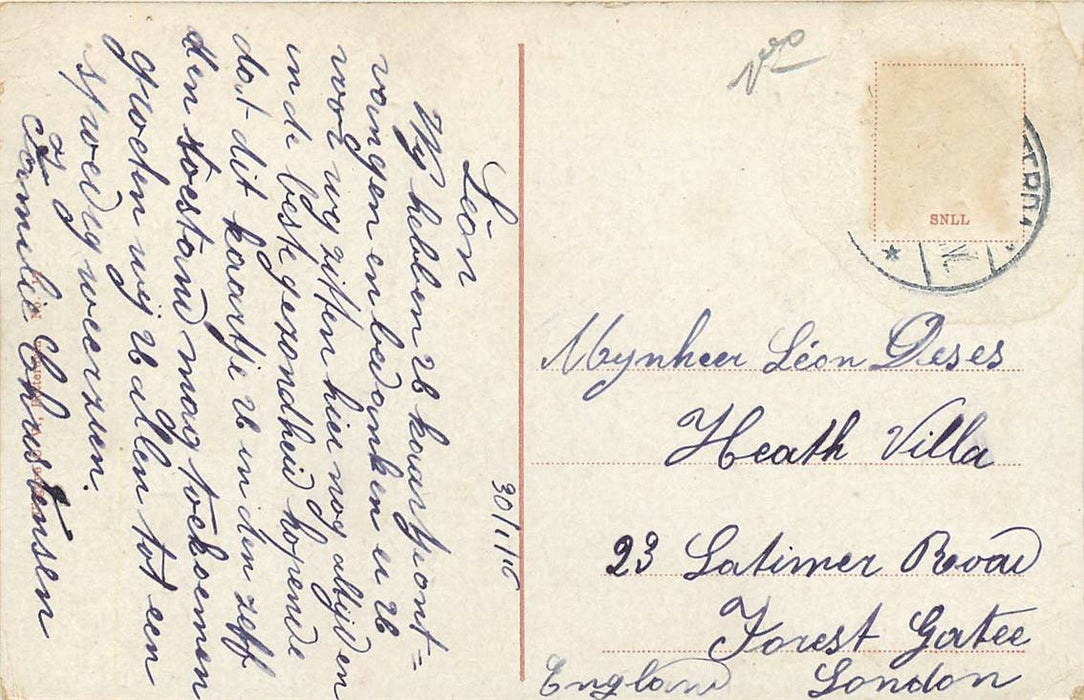 30/1/16
Léon
Wy hebben U kaart ont=
vangen en bedanken er U
voor wy zitten hier nog altijd en
in de beste gezondheid hopende
dat dit kaartje U in den zelf
den toestand mag toekomen
groeten wij U allen tot een
spoedig weerzien.
Familie Christensen
SNLL
Mynheer Léon Deses
Heath Villa
23 Latimer Road
Forest Gatee
London
England